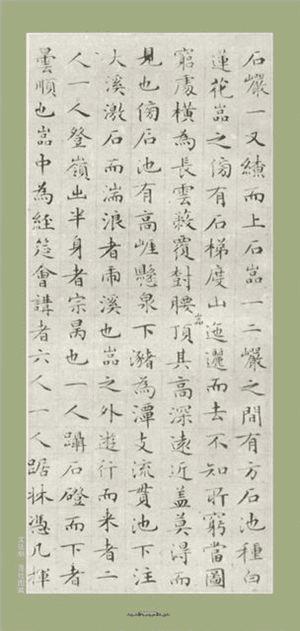 石巖一又而上石嵓一二巖之間有方石池種白
蓮花嵓之傍有石梯度山迤邐而去不知所窮當圖
窮處橫為長雲蔽覆樹腰嵓頂其高深遠近蓋莫得而
見也傍石池有高崕懸泉下瀦為潭支流貫池下注
大溪激石而湍浪者溪也嵓之外遊行而來者二
人一人登嶺出半身者宗昺也一人躡石磴而下者
曇順也嵓中為經筵會講者六人一人踞牀憑几揮